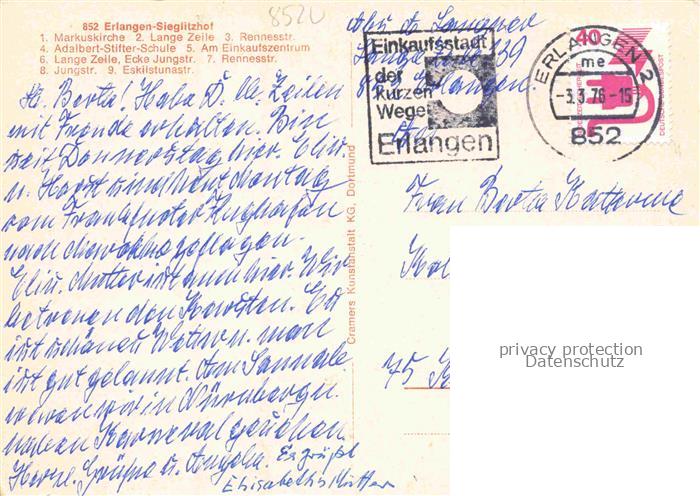 852 Erlangen-Sieglitzhof
1. Markuskirche 2. Lange Zeile 3. Rennesstr.
4. Adalbert-Stifter-Schule 5. Am Einkaufszentrum
6. Lange Zeile, Ecke Jungstr. 7. Rennesstr.
8. Jungstr. 9. Eskilstunastr.
8520
Lb. Berta! Habe D. lb. Zeilen
mit Freude erhalten. Bin
seit Donnerstag hier. Elis.
u. Horst sind seit Montag
vom Frankfurter Flughafen
nach
Elis. Mutter ist auch hier. Wir
betreuen den Karsten. Es
ist schönes Wetter u. man
ist gut gelaunt. Am Sonntag
waren wir in Nürnberg
haben Karneval gesehen.
Herzl. Grüße u. Angela. Es grüßt
Elisabeths Mutter
Cramers Kunstanstalt KG, Dortmund
Abs. A. Langner
139
Erlangen
Einkaufsstadt
der
kurzen
Wege
Erlangen
40
DEUTSCHE BUNDESPOST
ERLANGEN 2
me
-3.3.76-15
852
Frau Berta Katarina
75 K
privacy protection
Datenschutz